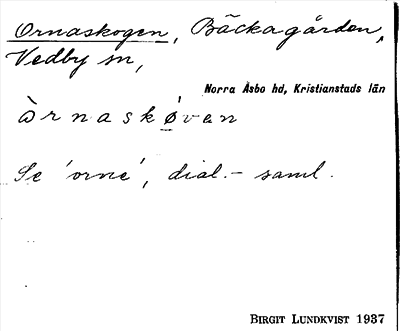 Ornaskogen, Bäckagården,
Vedby sn,
Norra Åsbo hd, Kristianstads län
òrnaskǿven
Se 'orne', dial.- saml.
BIRGIT LUNDKVIST 1937